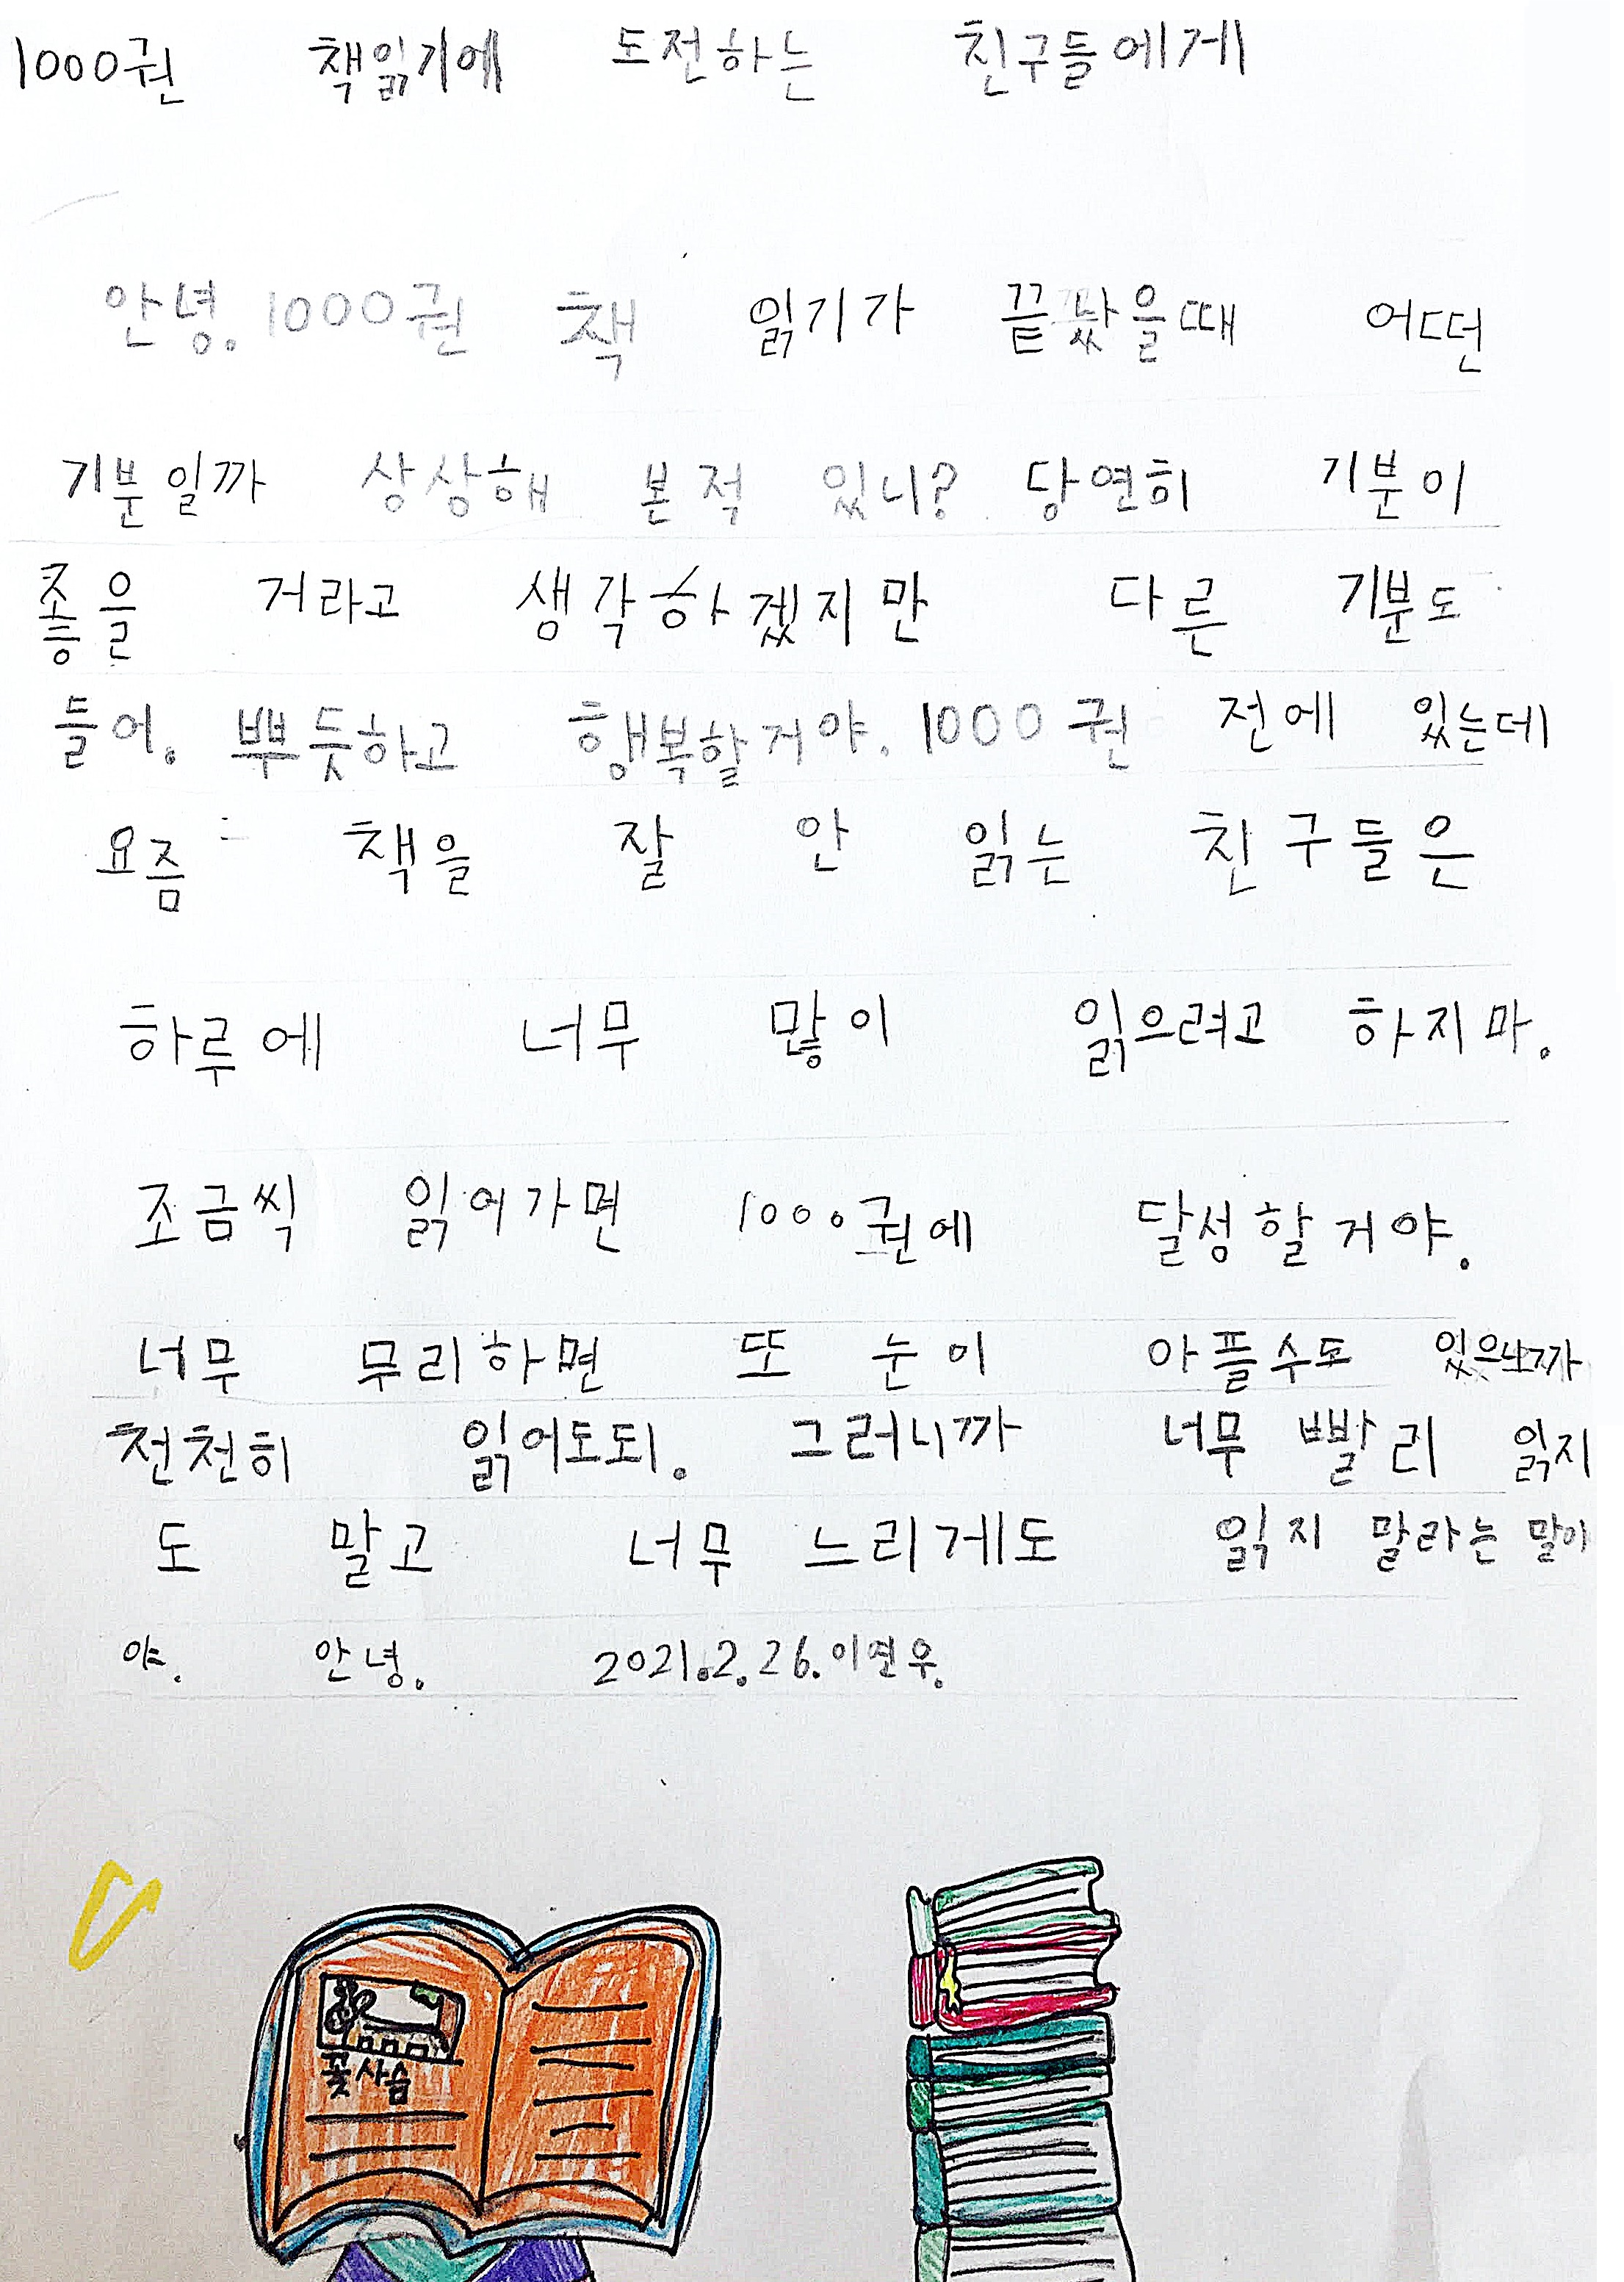 1000권 책읽기에 도전하는 친구들에게
안녕. 1000권 책 읽기가 끝놨을때 어떤
기분일까 상상해 본적 있니? 당연히 기분이
좋을 거라고 생각하겠지만 다른 기분도
들어. 뿌듯하고 행복할거야. 1000권 전에 있는데
요즘 책을 잘 안 읽는 친구들은
하루에 너무 많이 읽으려고 하지마.
조금씩 읽어가면 1000권에 달성할거야.
너무 무리하면 또 눈이 아플수도 있으니까
천천히 읽어도되. 그러니까 너무 빨리 읽지
도 말고 너무 느리게도 읽지 말라는 말이
야. 안녕. 2021.2.26.이연우.
꽃사슴